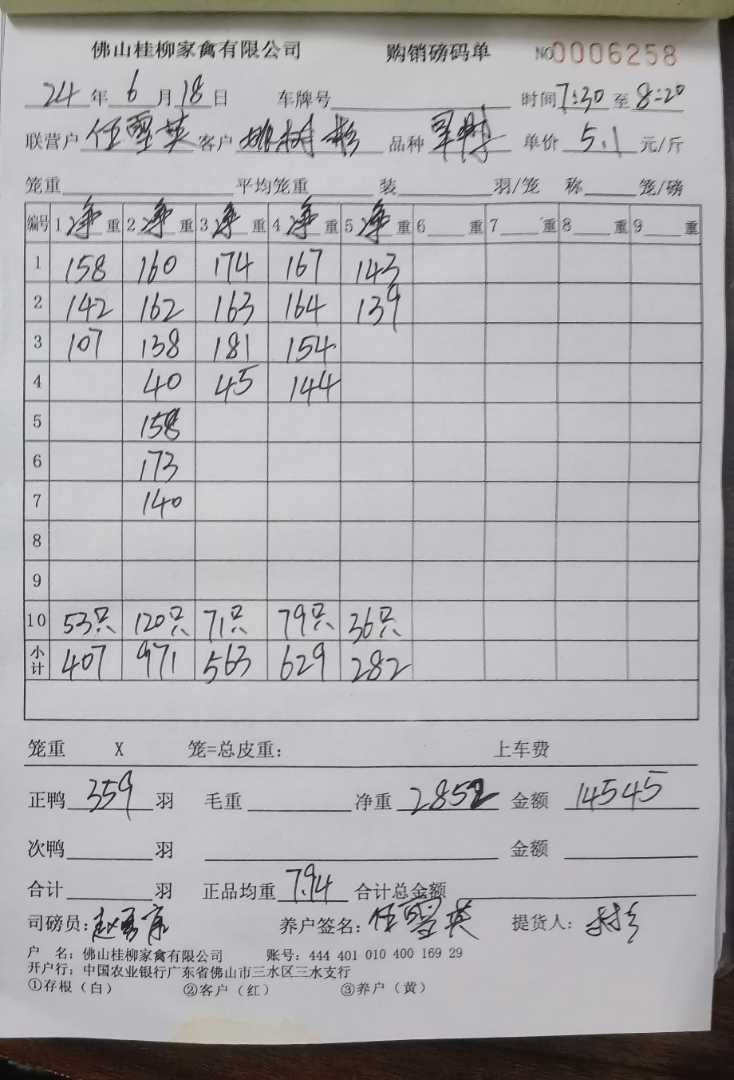 佛山桂柳家禽有限公司 购销磅码单 NO0006258
24年6月18日 车牌号 时间7:30至8:20
联营户 任雪英 客户 姚树彬 品种 单价 5.1 元/斤
笼重 平均笼重 装 羽/笼 称 笼/磅
编号 1净重 2净重 3净重 4净重 5净重 6重 7重 8重 9重
1 158 160 174 167 143
2 142 162 163 164 139
3 107 138 181 154
4 40 45 144
5 158
6 173
7 140
8
9
10 53只 120只 71只 79只 36只
小计 407 971 563 629 282
笼重 X 笼=总皮重: 上车费
正鸭 359 羽 毛重 净重 2852 金额 14545
次鸭 羽 金额
合计 羽 正品均重 7.94 合计总金额
司磅员: 养户签名: 任雪英 提货人:
户 名: 佛山桂柳家禽有限公司 账号: 444 401 010 400 169 29
开户行: 中国农业银行广东省佛山市三水区三水支行
①存根（白） ②客户（红） ③养户（黄）